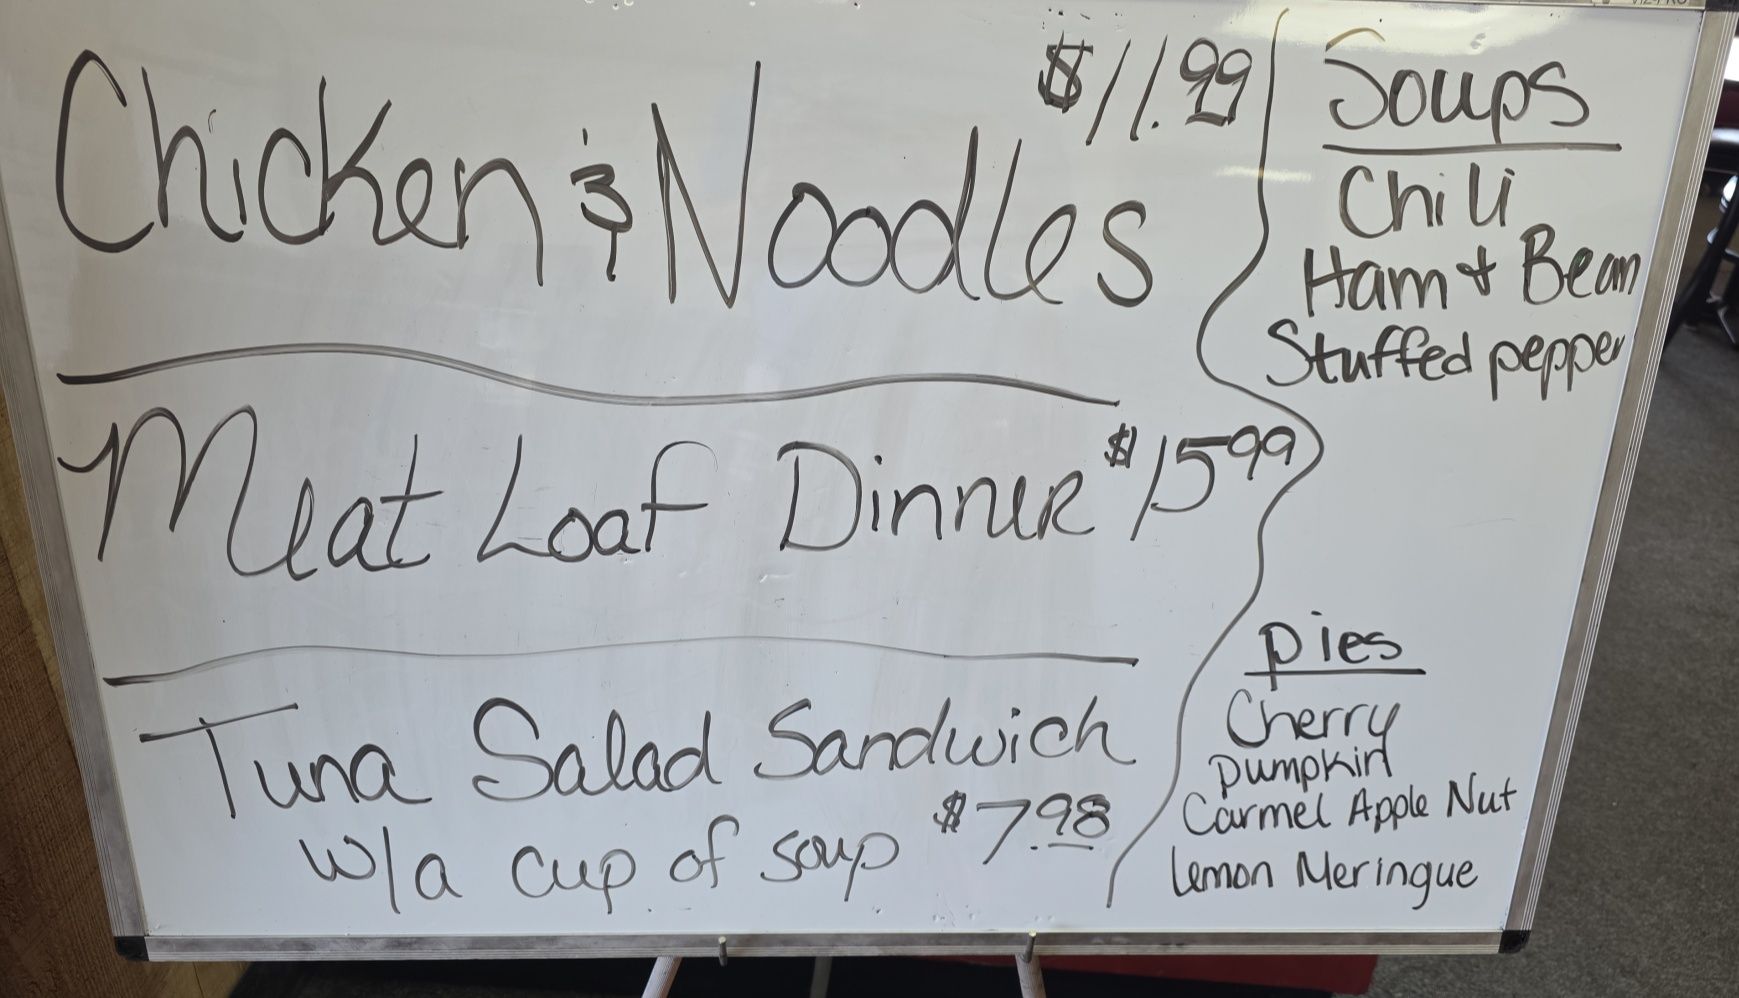 Chicken & Noodles $11.99
Meat Loaf Dinner $15.99
Tuna Salad Sandwich
w/a cup of soup $7.98
Soups
Chili
Ham + Bean
Stuffed pepper
pies
Cherry
Pumpkin
Carmel Apple Nut
Lemon Meringue